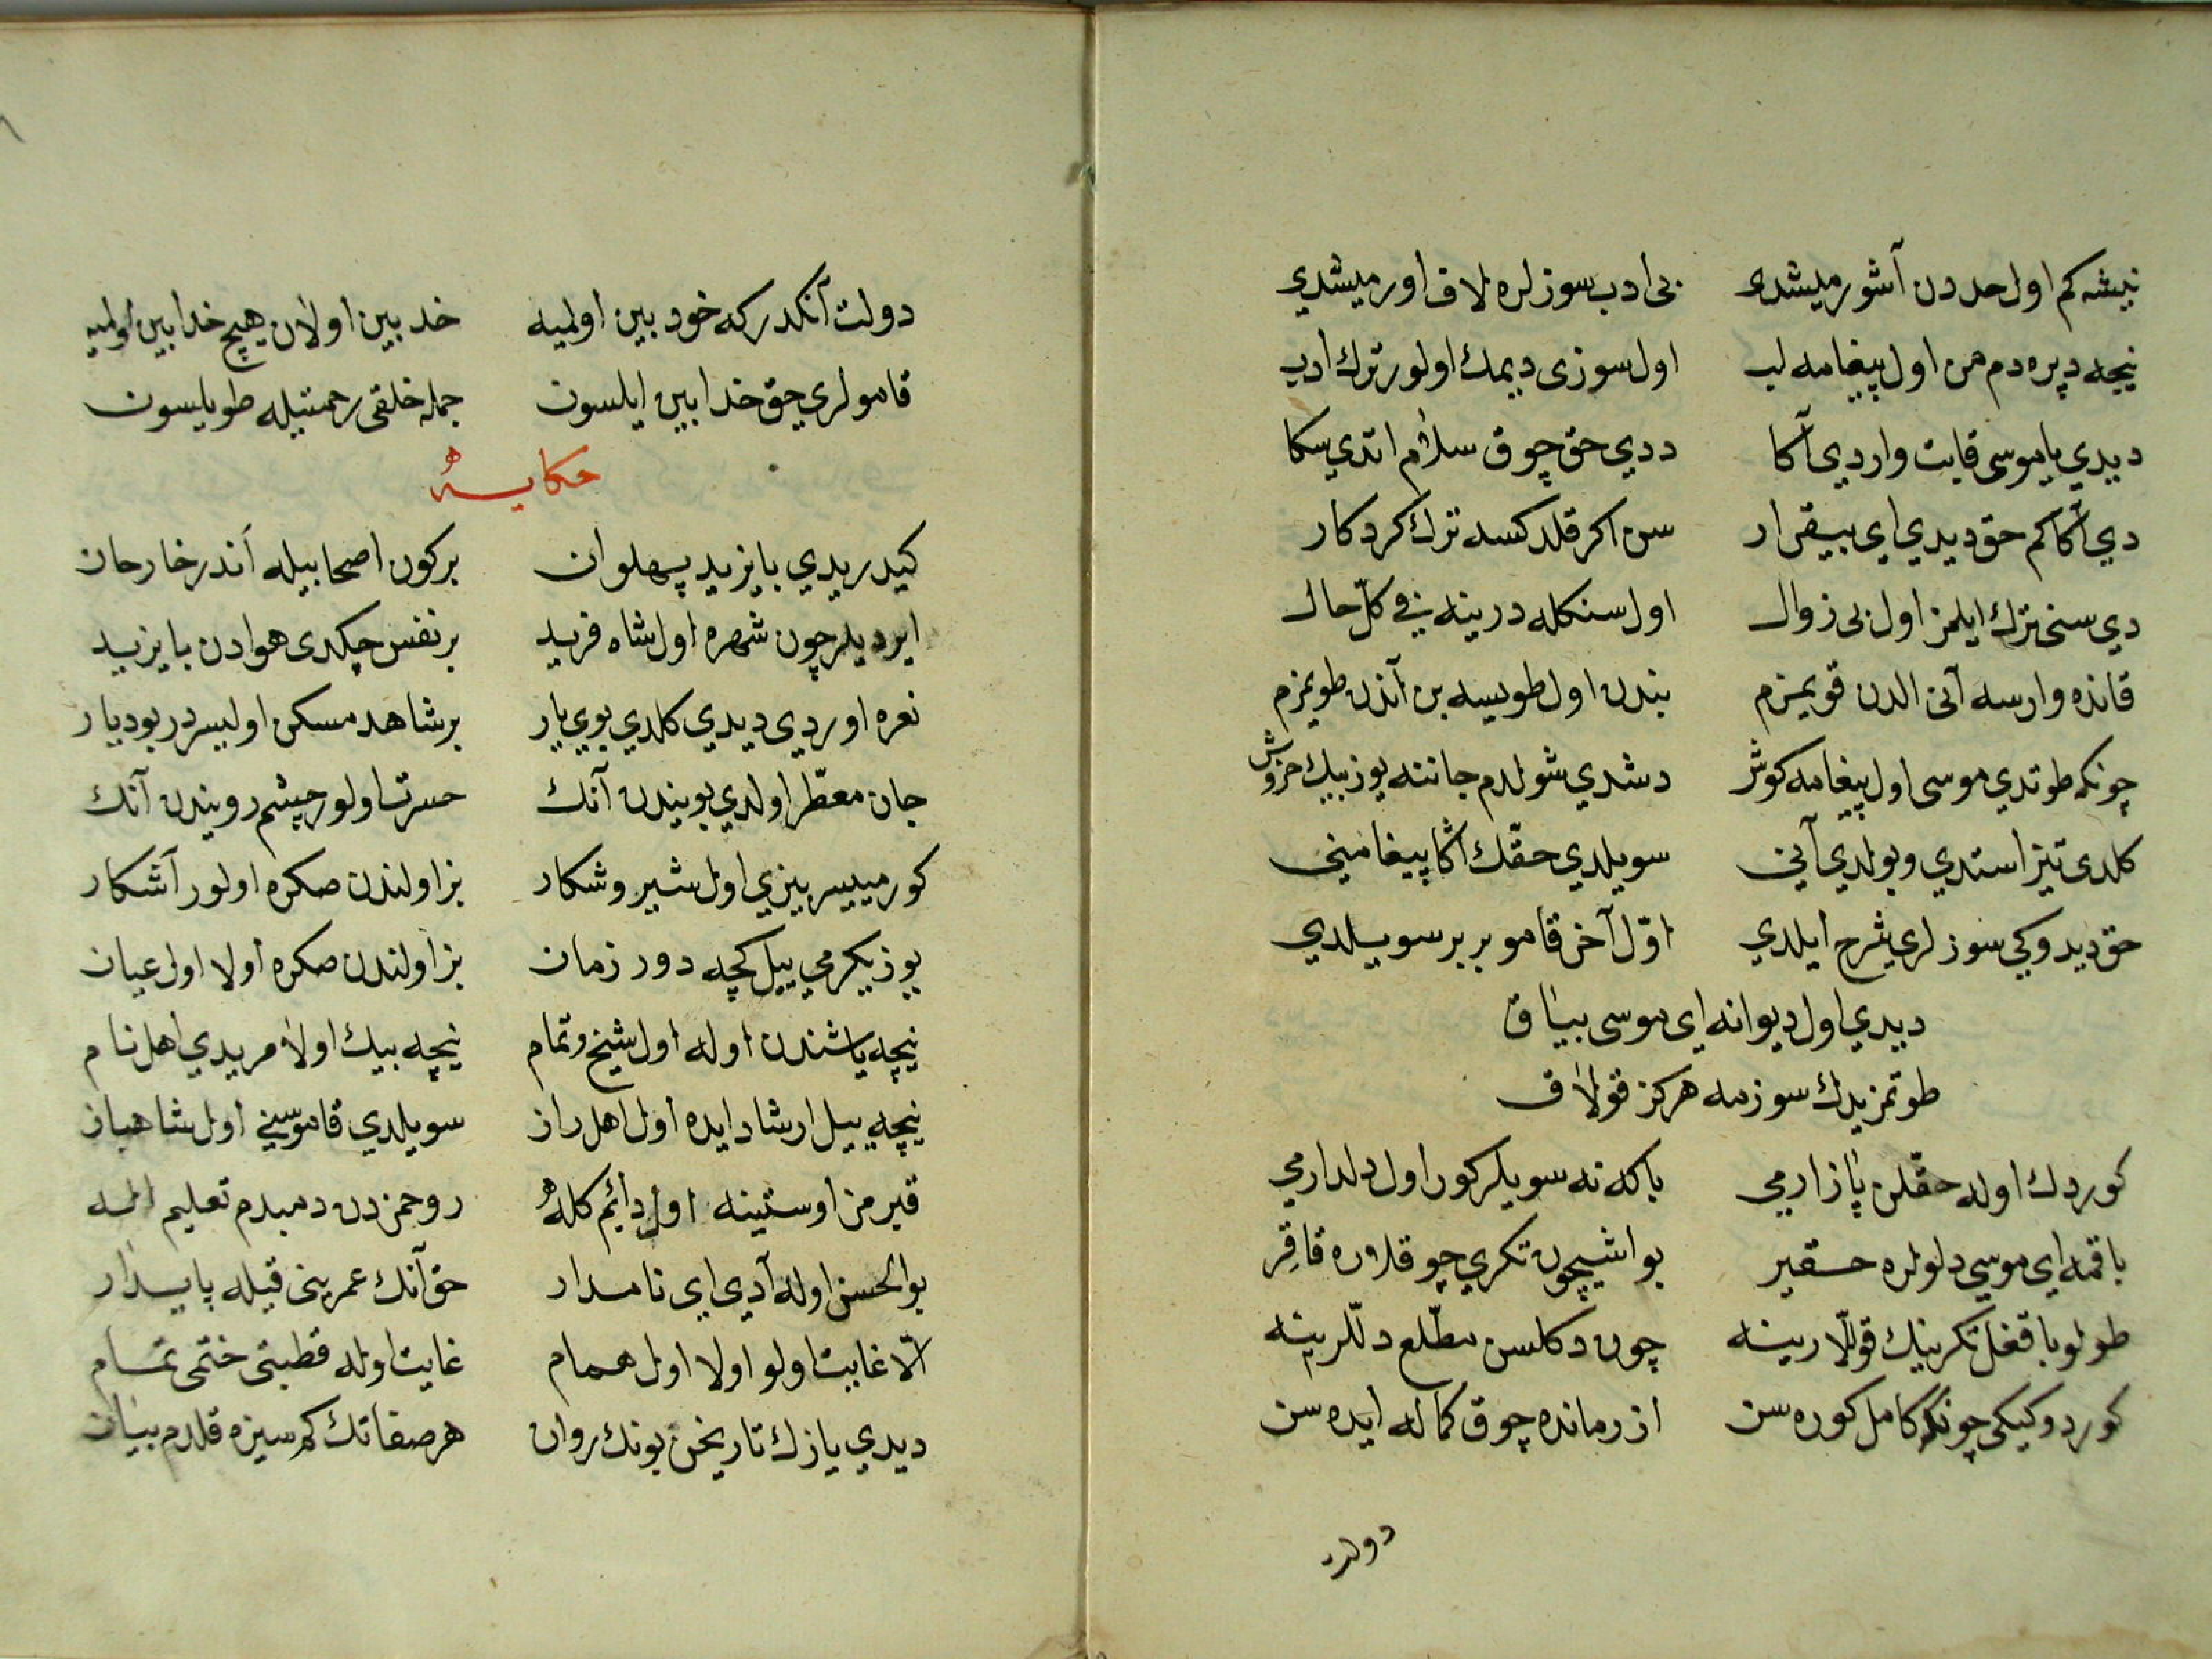 نیشه کم اول حددن آشورمیشدی بی ادب سوزلره لاف اورمیشدي
نیجه دپره دم من اول پیغامه لب اول سوزی دیمك اولور ترك ادب
دیدي یا موسی قایت واردي آکا ددي حق چوق سلام اتدي سکا
دي آکا کم حق دیدي اي بیقرار سن اکر قلدکسه ترك کردکار
دي سنی ترك ایلمز اول بی زوال اول سنکله درینه في کل حال
قانده وارسه آنی الدن قویمزم بندن اول طویسه بن آندن طویمزم
چونکه طوتدي موسی اول پیغامه کوش دشدي شولدم جاننه یوز بیك خروش
کلدی تیز استدي و بولدي آنی سویلدي حقك آکا پیغامنی
حق دیدوکی سوزلري شرح ایلدي اوّل آخر قامو بر بر سویلدي
دیدي اول دیوانه اي موسی بیاق
طوتمزیدك سوزمه هرکز قولاق
کوردك اوله حقلن پازارمي باکه نه سویلر کور اول دلدارمي
باقمه اي موسي دلولره حقیر بو اشیچون تکري چوقلاره قاقر
طولو باقغل تکرینك قوللارینه چون دکلسن مطّلع دللرینه
کوردوکیکی چونکه کامل کوره سن از زمانده چوق کماله ایده سن
دولت
دولت آنکدرکه خودبین اولمیه خدبین اولان هیچ خدابین اولمیه
قامولري حق خدابین ایلسون جمله خلقی رحمتیله طویلسون
حکایه
کیدریدي بایزید پهلوان برکون اصحابیله اندر خارحان
ایردیلر چون شهره اول شاه فرید بر نفس چکدی هوادن بایزید
نعره اوردي دیدي کلدي بوي یار بر شاهد مسکن اولیسردر بو دیار
جان معطّر اولدي بویندن آنك حسرت اولور چشم رویندن آنك
کورمییسر بیزي اول شیر و شکار بز اولندن صکره اولور آشکار
یوز یکرمي ییل کچه دور زمان بز اولندن صکره اولا اول عیان
نیچه یاشندن اوله اول شیخ و تمام نیچه بیك اولا مریدي اهل نام
نیچه ییل ارشاد ایده اول اهل راز سویلدي قاموسنی اول شاهباز
قبرمز اوستینه اول دائم کله روحمزدن دمبدم تعلیم اله
بوالحسن اوله آدي اي نامدار حق آنك عمرینی قیله پایدار
الّا غایت اولو اولا اول همام غایت اوله قطبتی ختمی تمام
دیدي یازك تاریخن بونك روان هر صفاتك کم سیزه قلدم بیان